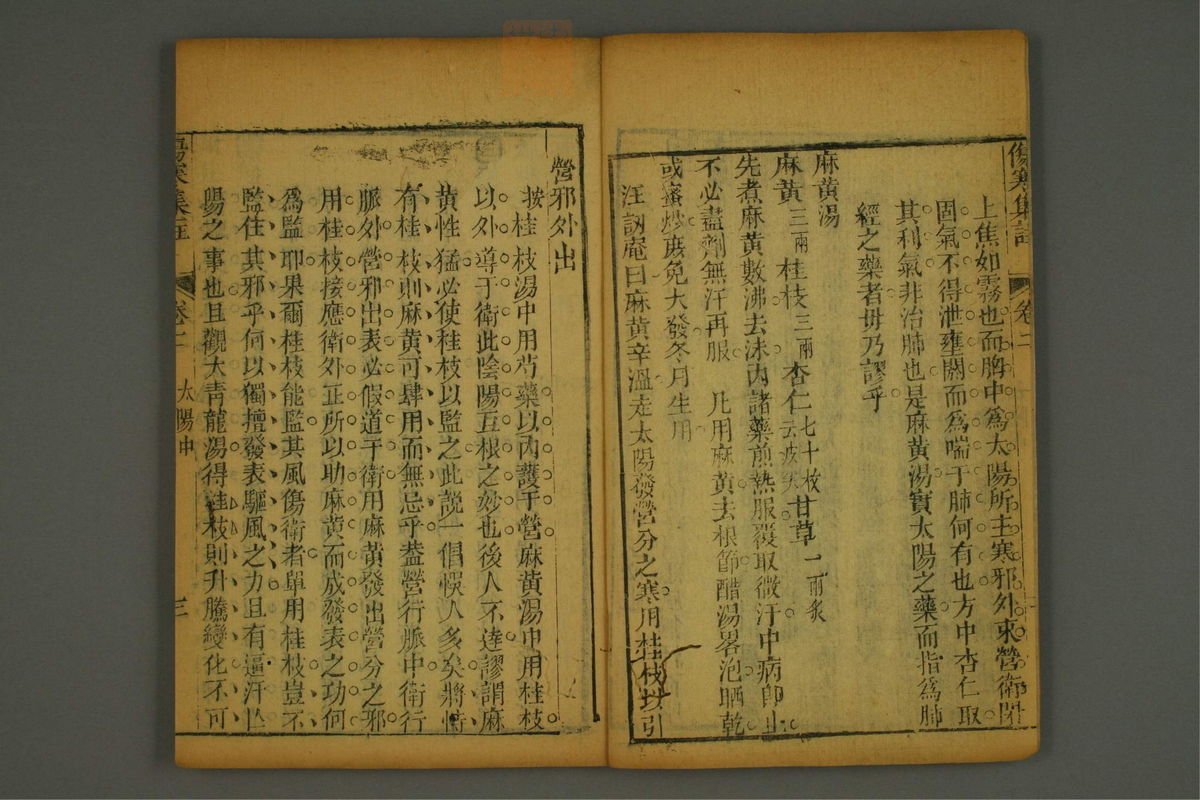 傷寒集註 卷二
上焦如霧也而胸中爲太陽所主寒邪外束營衛閉
固氣不得泄壅閼而爲喘于肺何有也方中杏仁取
其利氣非治肺也是麻黃湯實太陽之藥而指爲肺
經之藥者毋乃謬乎
麻黃湯
麻黃三兩 桂枝三兩 杏仁七十枚去皮尖 甘草一兩炙
先煮麻黃數沸去沫內諸藥煎熱服覆取微汗中病卽止
不必盡劑無汗再服 凡用麻黃去根節醋湯畧泡晒乾
或蜜炒庶免大發冬月生用
汪訒庵曰麻黃辛溫走太陽發營分之寒用桂枝以引
營邪外出
按桂枝湯中用芍藥以內護于營麻黃湯中用桂枝
以外導于衛此陰陽互根之妙也後人不達謬謂麻
黃性猛必使桂枝以監之此說一倡悞人多矣將恃
有桂枝則麻黃可肆用而無忌乎葢營行脈中衛行
脈外營邪出表必假道于衛用麻黃發出營分之邪
用桂枝接應衛外正所以助麻黃而成發表之功何
爲監耶果爾桂枝能監其風傷衛者單用桂枝豈不
監住其邪乎何以獨擅發表驅風之力且有逼汗
陽之事也且觀大青龍湯得桂枝則升騰變化不可
傷寒集註 卷二 太陽中 三